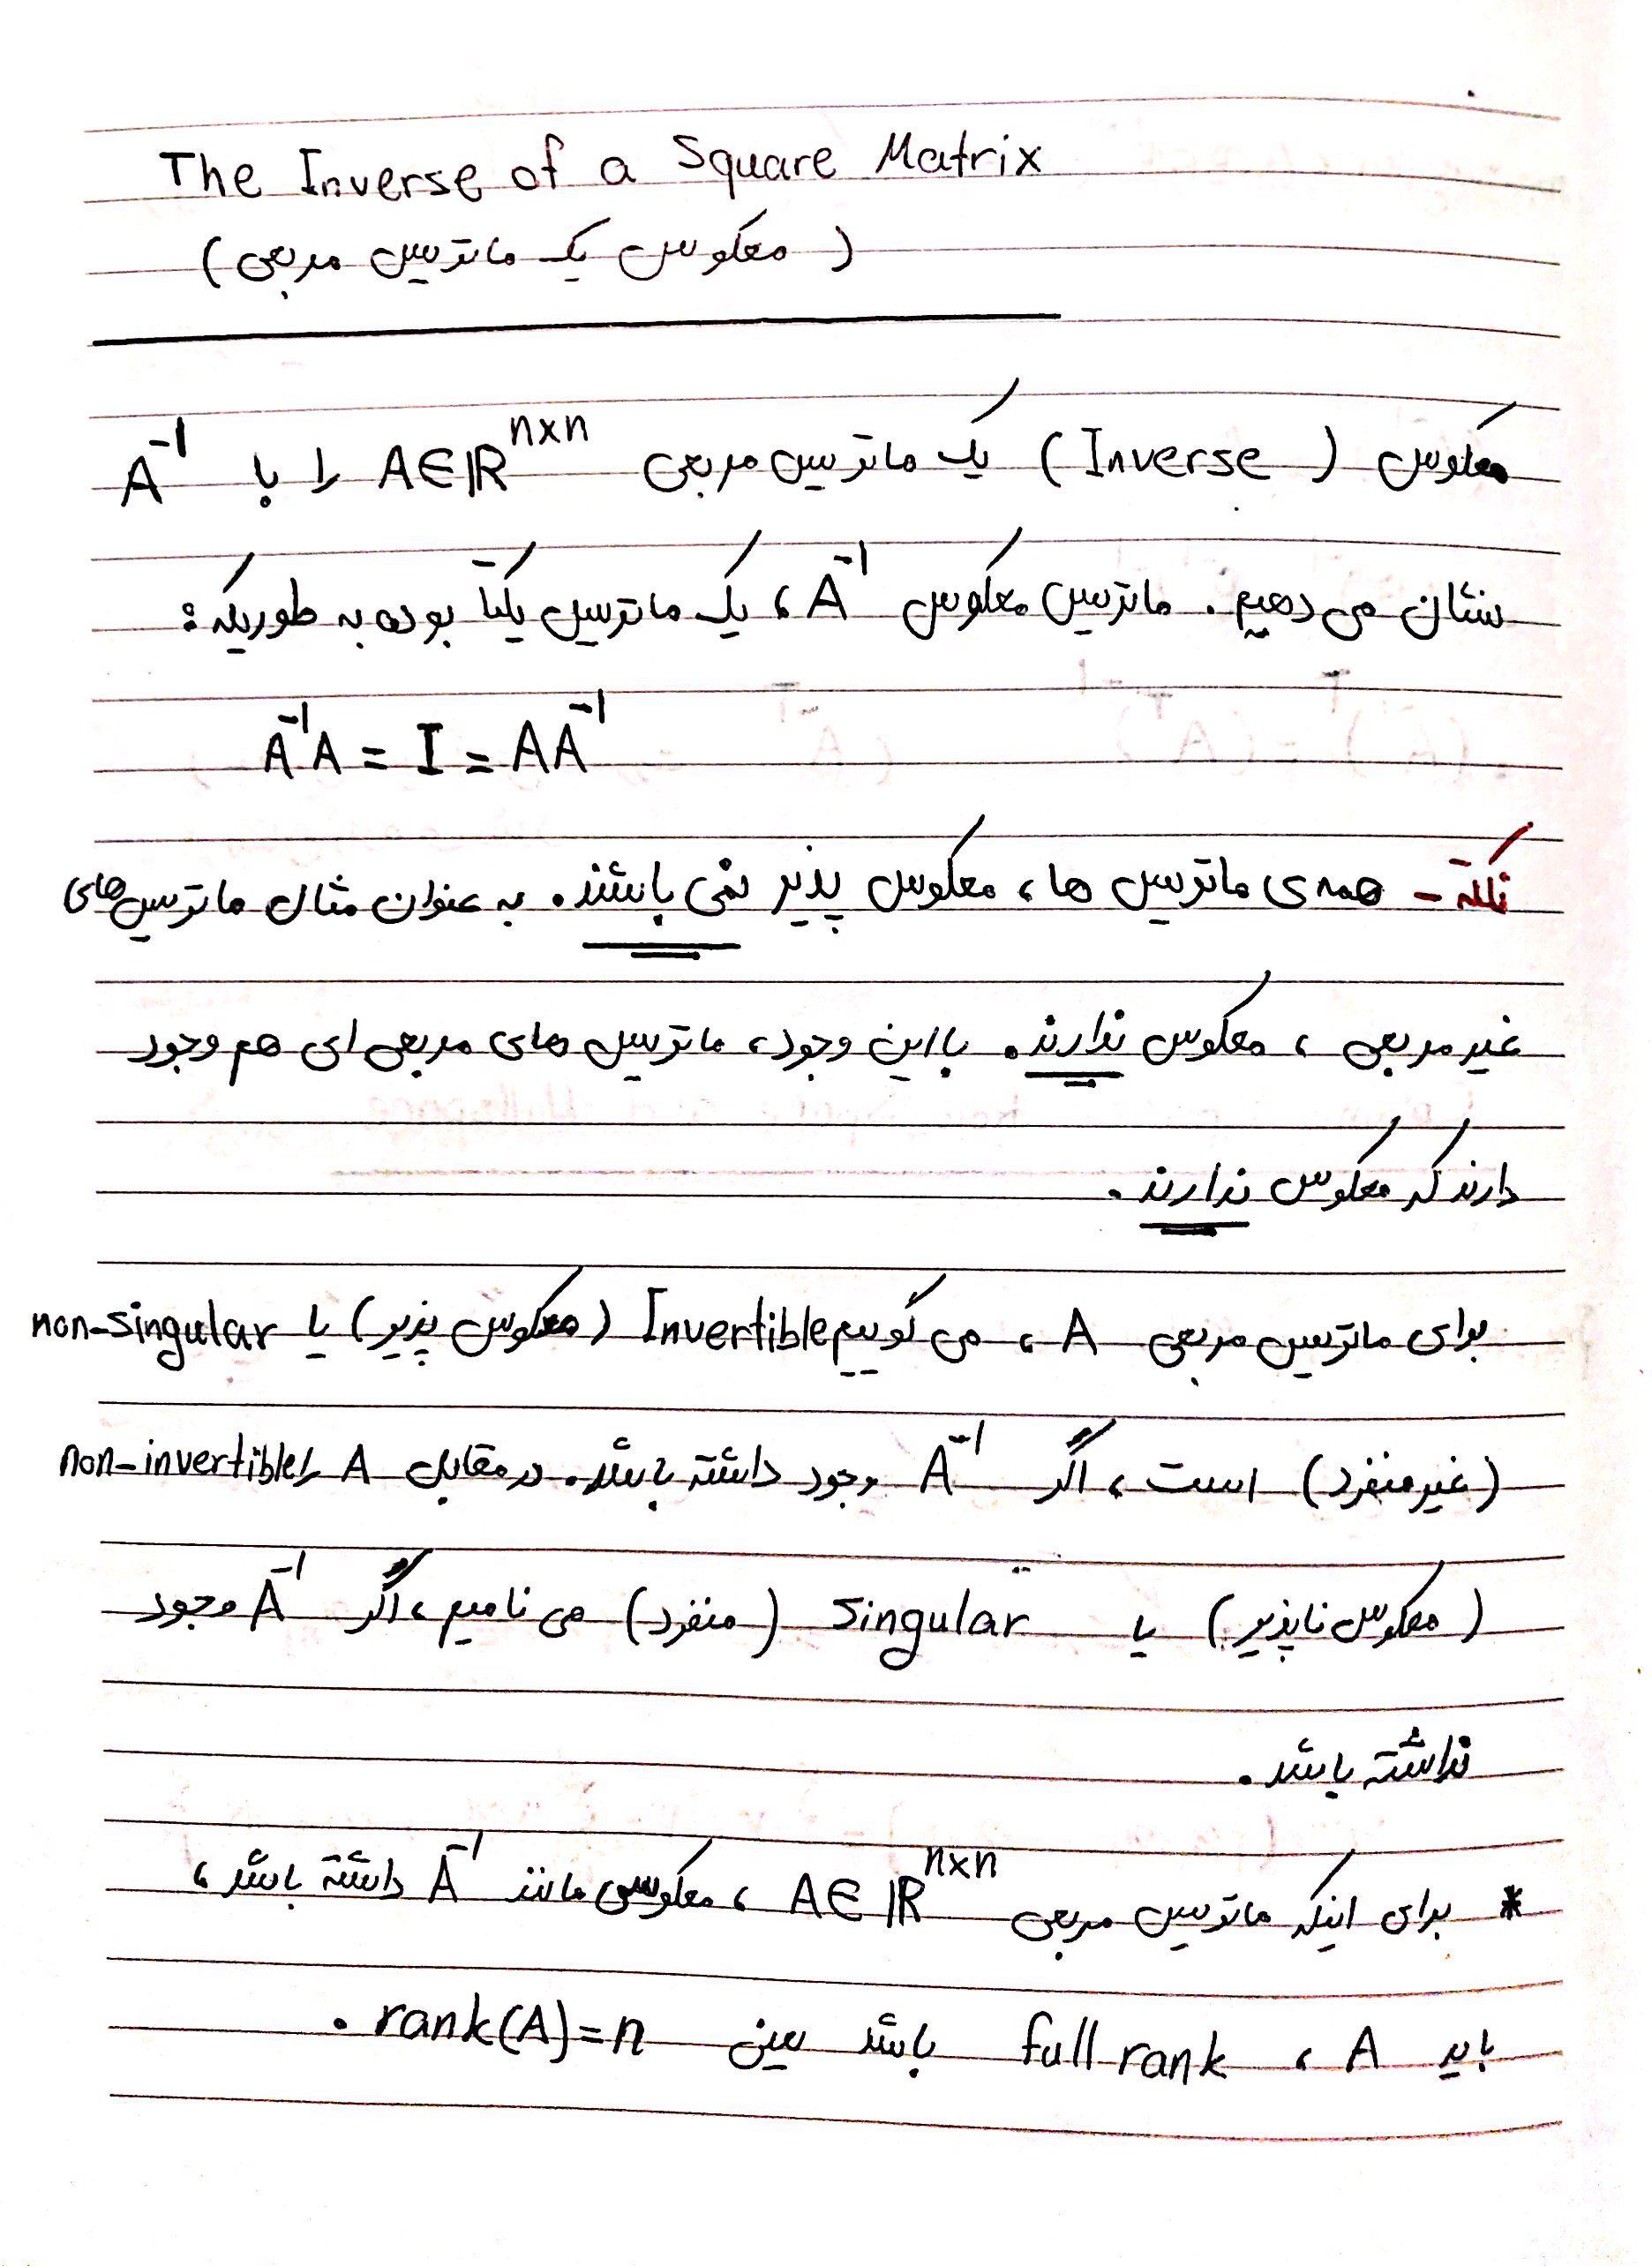 The Inverse of a Square Matrix
(معکوس یک ماتریس مربعی)
معکوس (Inverse) یک ماتریس مربعی A∈ℝⁿˣⁿ را با A⁻¹
نشان می دهیم. ماتریس معکوس A⁻¹، یک ماتریس یکتا بوده به طوریکه:
A⁻¹A = I = AA⁻¹
نکته - همه ی ماتریس ها، معکوس پذیر نمی باشند. به عنوان مثال ماتریس های
غیر مربعی، معکوس ندارند. با این وجود، ماتریس های مربعی ای هم وجود
دارند که معکوس ندارند.
برای ماتریس مربعی A، می گوییم Invertible (معکوس پذیر) یا non-singular
(غیر منفرد) است، اگر A⁻¹ وجود داشته باشد. در مقابل A را non-invertible
(معکوس ناپذیر) یا singular (منفرد) می نامیم، اگر A⁻¹ وجود
نداشته باشد.
* برای اینکه ماتریس مربعی A∈ℝⁿˣⁿ، معکوسی مانند A⁻¹ داشته باشد،
باید A، full rank باشد یعنی rank(A)=n.